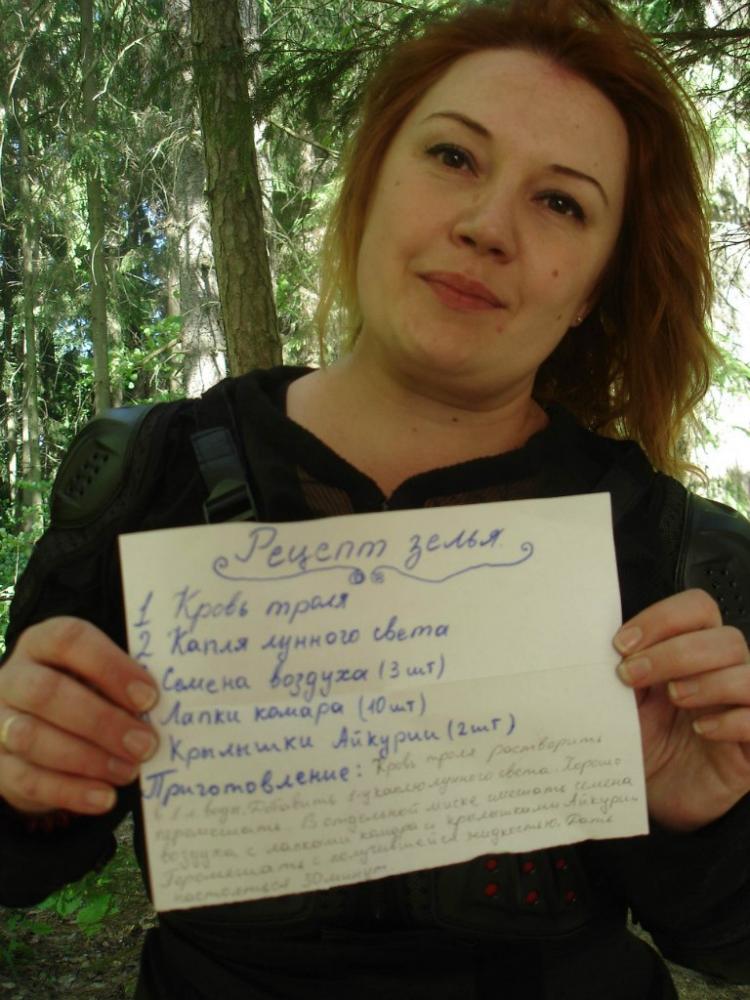 Рецепт зелья.
1 Кровь троля
2 Капля лунного света
Семена воздуха (3 шт)
Лапки комара (10 шт)
Крылышки Айкурии (2 шт)
Приготовление: Кровь троля растворить
в 1 л воды. Добавить 1-у каплю лунного света. Хорошо
перемешать. В отдельной миске смешать семена
воздуха с лапками комара и крылышками Айкурии
Перемешать с получившейся жидкостью. Дать
настояться 30 минут